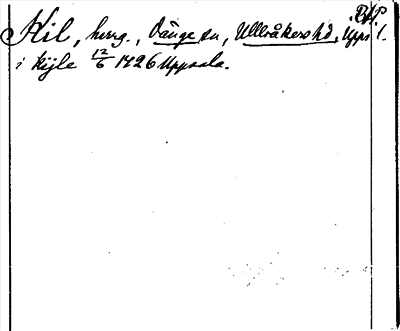 BHP.
Kil, herrg., Vänge sn, Ulleråkers hd, Upps l.
i Kijle 12/6 1426 Uppsala.